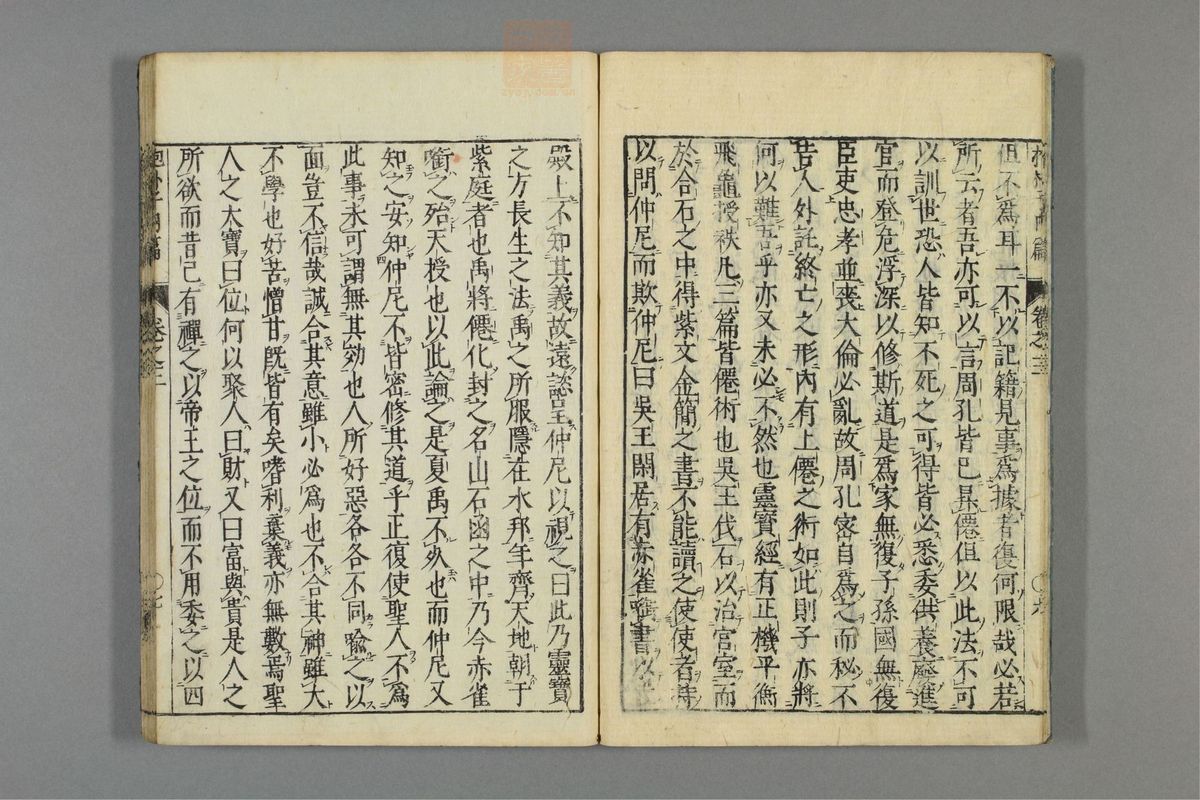 但不爲耳一不以記籍見事爲據者復何限哉必若
所云者吾亦可以言周孔皆已昇僊但以此法不可
以訓世恐人皆知不死之可得皆必悉委供養廢進
官而登危浮深以修斯道是爲家無復子孫國無復
臣吏忠孝並喪大倫必亂故周孔密自爲之而秘不
告人外託終亡之形內有上僊之術如此則子亦將
何以難吾乎亦又未必不然也靈寶經有正機平衡
飛龜授袟凡三篇皆僊術也吳王伐石以治宮室而
於合石之中得紫文金簡之書不能讀之使使者持
以問仲尼而欺仲尼曰吳王閑居有赤雀啣書以
殿上不知其義故遠諮呈仲尼以視之曰此乃靈寶
之方長生之法禹之所服隱在水邦年齊天地朝于
紫庭者也禹將僊化封之名山石函之中乃今赤雀
啣之殆天授也以此論之是夏禹不死也而仲尼又
知之安知仲尼不皆密修其道乎正復使聖人不爲
此事未可謂無其効也人所好惡各各不同喩之以
面豈不信哉誠合其意雖小必爲也不合其神雖大
不學也好苦憎甘既皆有矣嗜利棄義亦無數焉聖
人之大寶曰位何以聚人曰財又曰富與貴是人之
所欲而昔已有禪之以帝王之位而不用委之以四
卷之二